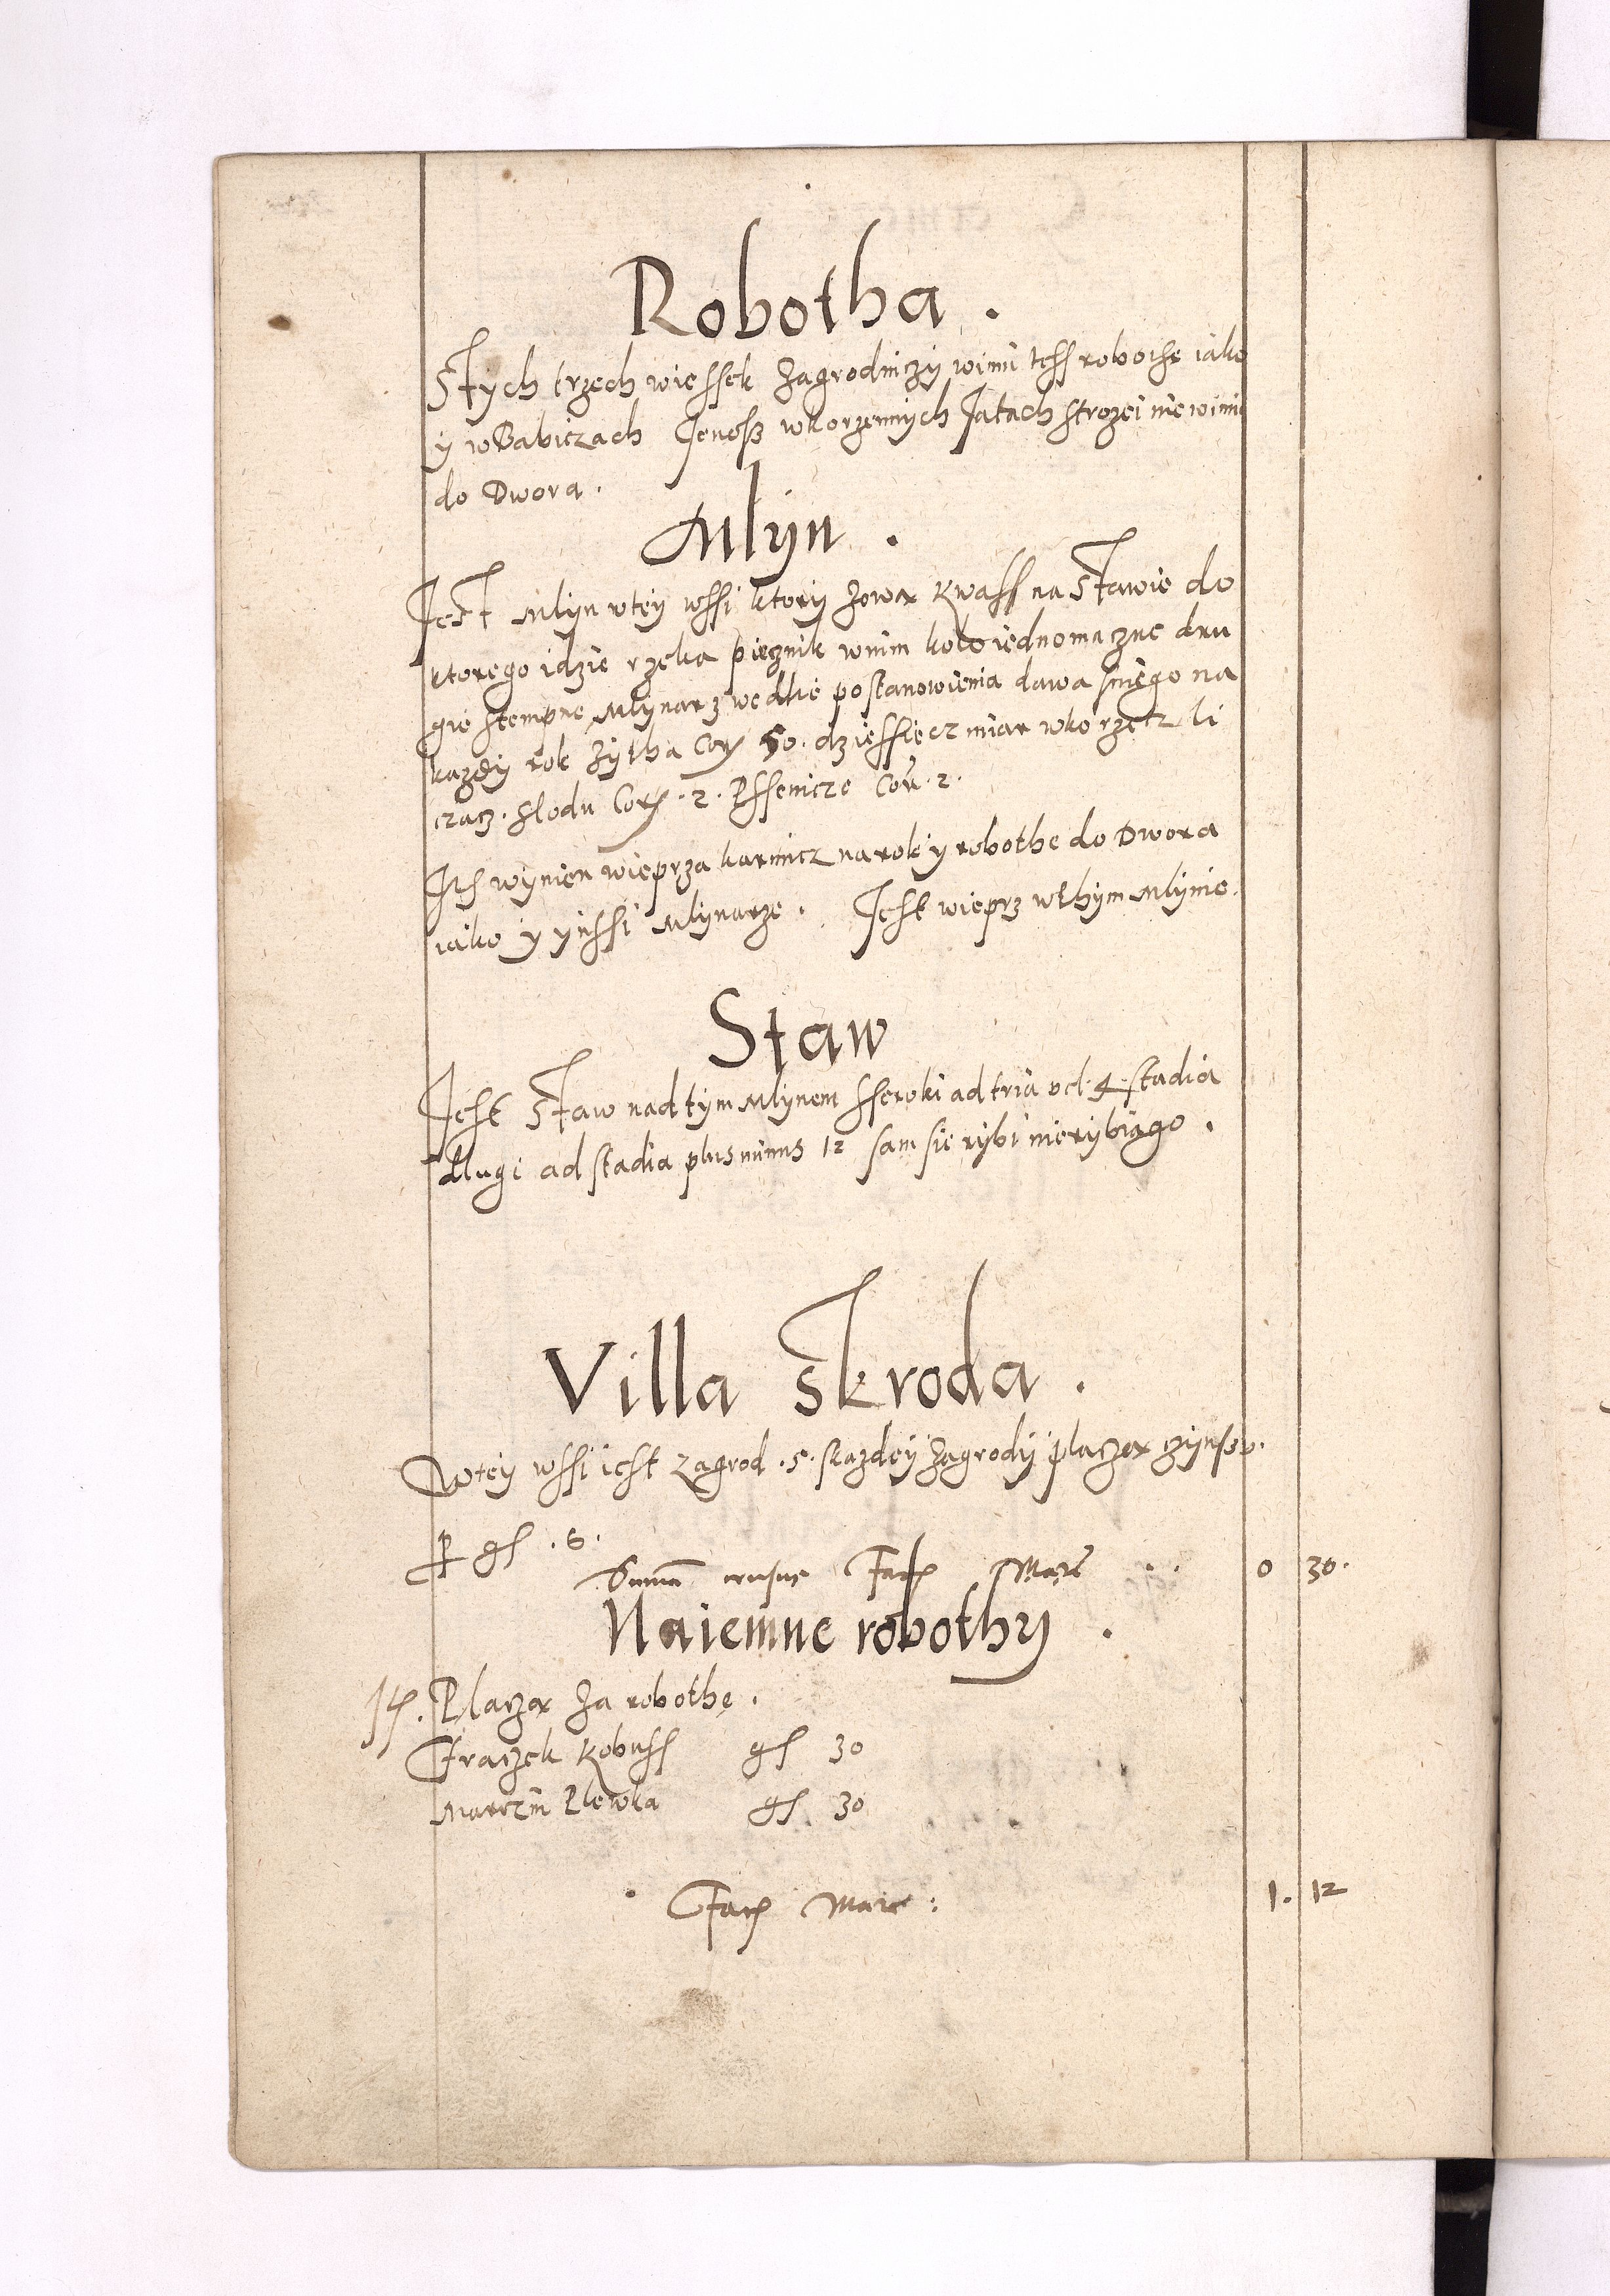 Robotha .
Stych trzech wiessek Zagrodniczy winni tess robothe iako
y wBabiczach Jenosz wkorzennych Jatach strozei nie winni
do Dwora .
Mlyn .
Jest Mlyn wtey wssi ktory zowa Kwass na Stawie do
ktorego idzie rzeka pięcznik wnim kolo iedno maczne dru
gie stempne Mlynarz wedlie postanowienia dawa sniego na
kazdy rok Zytha Cor 50. dziessięcz miar wkorzecz li
czacz . Slodu Cor . 2 . Pssenicze Cor . 2 .
Jtes wynien wieprza karmicz na rok y robothe do Dwora
iako y ynssi Mlynarze . Jest wieprz wthym Mlynie .
Staw
Jest Staw nad tym Mlynem sseroki ad tria vel . 4 . stadia
dlugi ad stadia plus minus 12 sam sie rybi nierybiągo .
Villa Skroda .
Wtey wssi iest Zagrod . 5 . skazdey Zagrody placzą czynszu .
P gs . 6 .
Suma census Facit Marc . . 0 30 .
Naiemne robothy .
It . Placzą Za robothę .
Fraczek Kobuss gs 30
Marczin Plewka gs 30
Facit Marc : 1 . 12